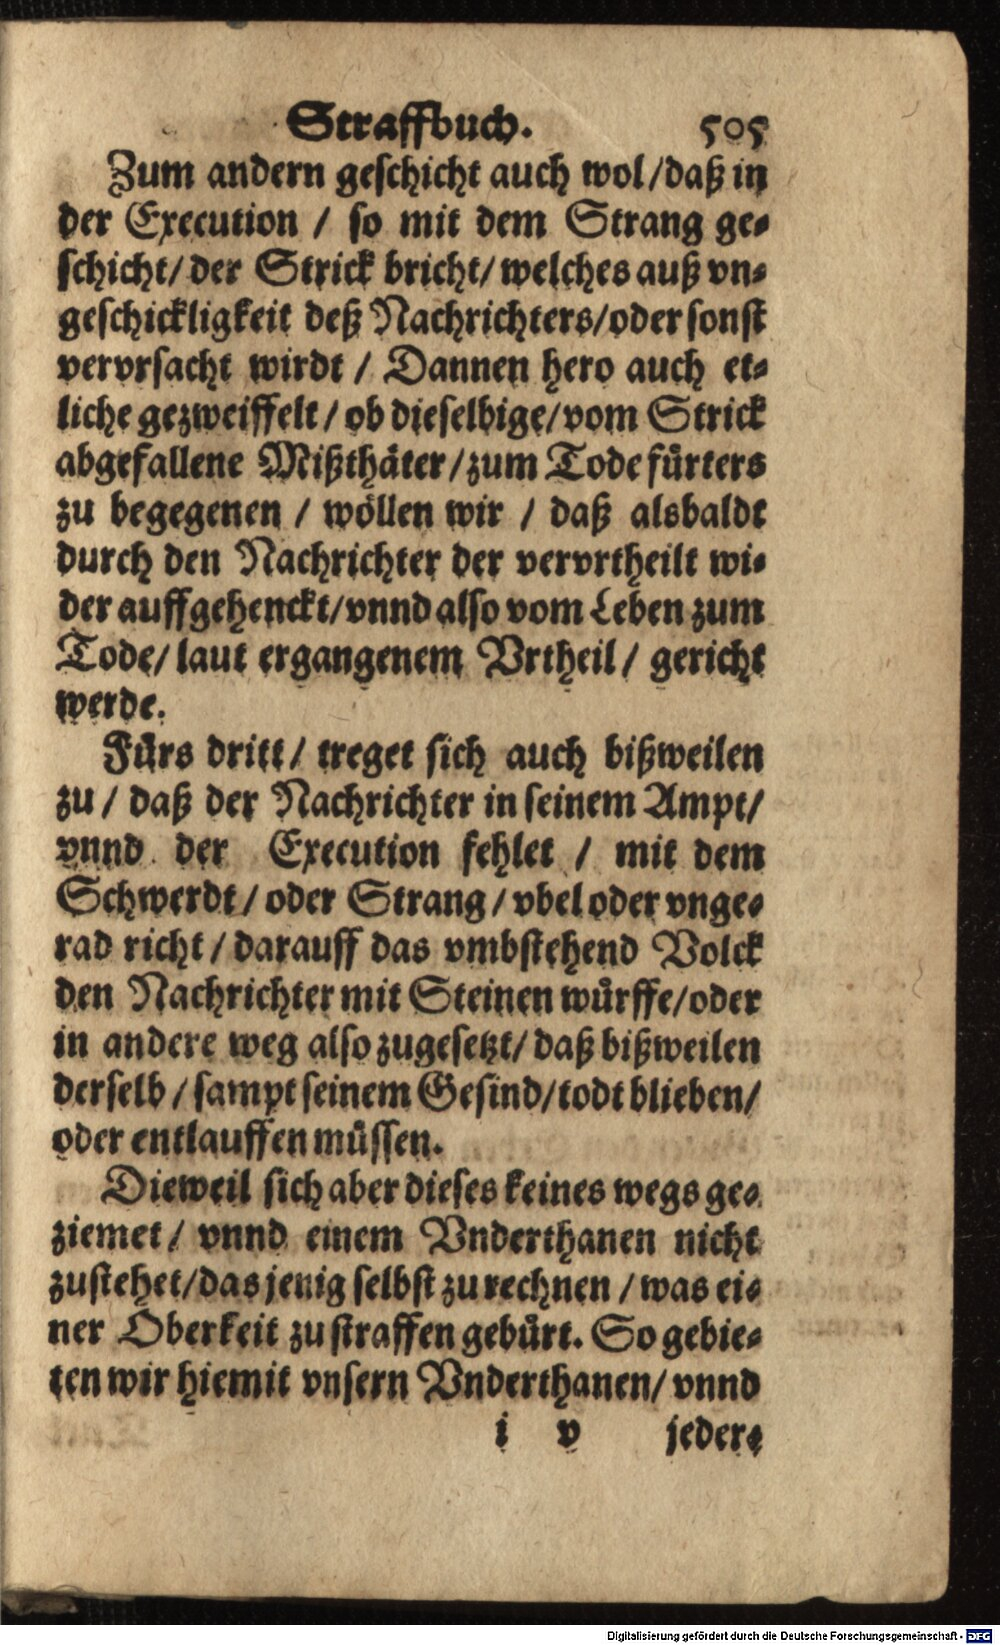 Straffbuch. 505
Zum andern geschicht auch wol/daß in
der Execution / so mit dem Strang ge-
schicht/ der Strick bricht/ welches auß vn-
geschickligkeit deß Nachrichters/oder sonst
vervrsacht wirdt / Dannen hero auch et-
liche gezweiffelt / ob dieselbige/vom Strick
abgefallene Mißthäter/zum Tode fürters
zu begegenen / wöllen wir / daß alsbaldt
durch den Nachrichter der vervrtheilt wi-
der auffgehenckt/vnnd also vom Leben zum
Tode/ laut ergangenem Vrtheil/ gericht
werde.
Fürs dritt/ treget sich auch bißweilen
zu / daß der Nachrichter in seinem Ampt/
vnnd der Execution fehlet / mit dem
Schwerdt / oder Strang / vbel oder vnge-
rad richt / darauff das vmbstehend Volck
den Nachrichter mit Steinen würffe/oder
in andere weg also zugesetzt/ daß bißweilen
derselb / sampt seinem Gesind/todt blieben/
oder entlauffen müssen.
Dieweil sich aber dieses keines wegs ge-
ziemet / vnnd einem Vnderthanen nicht
zustehet/das jenig selbst zu rechnen / was ei-
ner Oberkeit zu straffen gebürt. So gebie-
ten wir hiemit vnsern Vnderthanen/ vnnd
i v jeder-
Digitalisierung gefördert durch die Deutsche Forschungsgemeinschaft - DFG